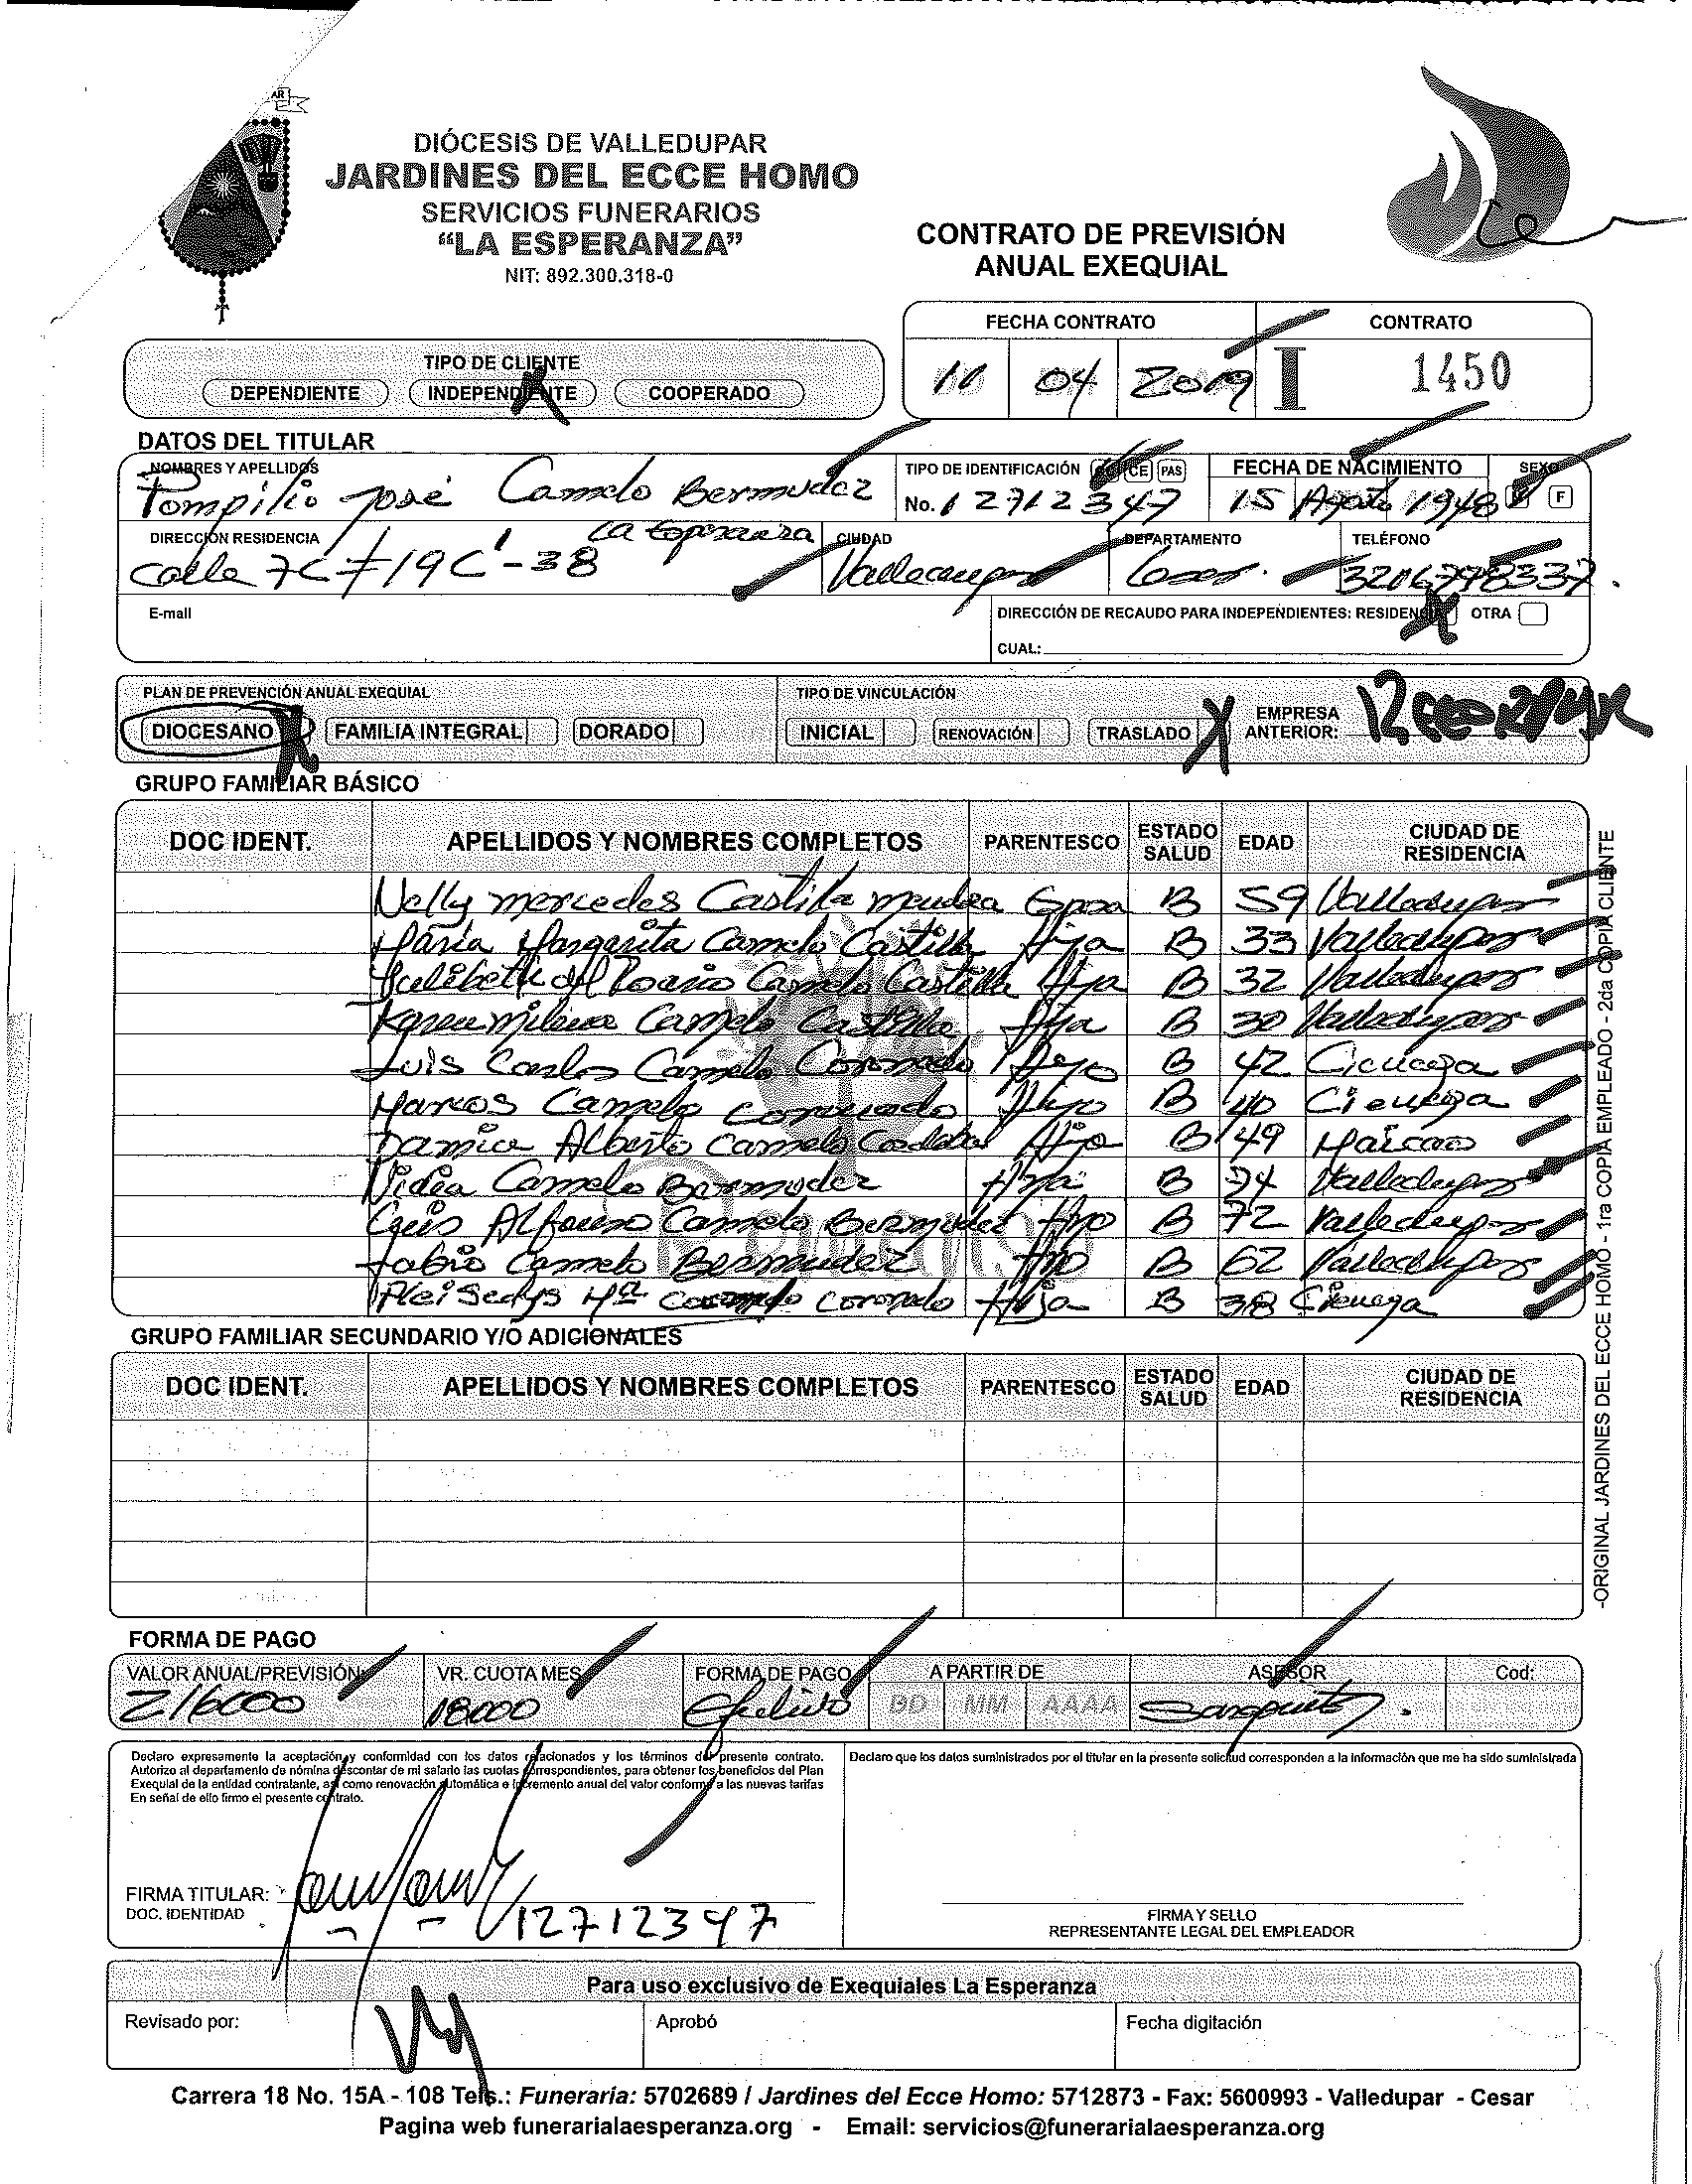 DIÓCESIS DE VALLEDUPAR
JARDINES DEL ECCE HOMO
SERVICIOS FUNERARIOS
“LA ESPERANZA”
NIT: 892.300.318-0
CONTRATO DE PREVISIÓN
ANUAL EXEQUIAL
FECHA CONTRATO CONTRATO
04 2019 I 1450
TIPO DE CLIENTE
DEPENDIENTE INDEPENDIENTE X COOPERADO
DATOS DEL TITULAR
NOMBRES Y APELLIDOS
Pompilio José Camelo Bermudez
TIPO DE IDENTIFICACIÓN CE PAS
No. 12712347
FECHA DE NACIMIENTO
15 Agosto 1948
SEXO F
DIRECCIÓN RESIDENCIA La Esperanza
Calle 7C #19C-38
CIUDAD
Valledupar
DEPARTAMENTO
Cesar.
TELÉFONO
E-mail
DIRECCIÓN DE RECAUDO PARA INDEPENDIENTES: RESIDENCIA X OTRA
CUAL:
PLAN DE PREVENCIÓN ANUAL EXEQUIAL
DIOCESANO X FAMILIA INTEGRAL DORADO
TIPO DE VINCULACIÓN
INICIAL RENOVACIÓN TRASLADO X
EMPRESA
ANTERIOR:
GRUPO FAMILIAR BÁSICO
DOC IDENT. APELLIDOS Y NOMBRES COMPLETOS PARENTESCO ESTADO SALUD EDAD CIUDAD DE RESIDENCIA
Nelly mercedes Castilla mendoza Esposa B 59 Valledupar
Maria Margarita Camelo Castilla Hija B 33 Valledupar
Yulibeth del Rosario Camelo Castilla Hija B 32 Valledupar
Karen Milena Camelo Castilla Hija B 30 Valledupar
Luis Carlos Camelo Coronado Hijo B 42 Cienega
Marcos Camelo Coronado Hijo B 40 Cienega
Alberto Camelo Hijo B 49 Maicao
Nidia Camelo Bermudez Hna B 74 Valledupar
Luis Alfonso Camelo Bermudez Hno B 72 Valledupar
Fabio Camelo Bermudez Hno B 62 Valledupar
Mª Coronado Hija B 38 Cienega
GRUPO FAMILIAR SECUNDARIO Y/O ADICIONALES
DOC IDENT. APELLIDOS Y NOMBRES COMPLETOS PARENTESCO ESTADO SALUD EDAD CIUDAD DE RESIDENCIA
FORMA DE PAGO
VALOR ANUAL/PREVISIÓN: VR. CUOTA MES FORMA DE PAGO A PARTIR DE ASESOR Cod:
216000 18000 Efectivo DD MM AAAA
Declaro expresamente la aceptación y conformidad con los datos relacionados y los términos del presente contrato.
Autorizo al departamento de nómina descontar de mi salario las cuotas correspondientes, para obtener los beneficios del Plan
Exequial de la entidad contratante, así como renovación automática e incremento anual del valor conforme a las nuevas tarifas
En señal de ello firmo el presente contrato.
FIRMA TITULAR:
DOC. IDENTIDAD
12712347
Declaro que los datos suministrados por el titular en la presente solicitud corresponden a la información que me ha sido suministrada
FIRMA Y SELLO
REPRESENTANTE LEGAL DEL EMPLEADOR
Para uso exclusivo de Exequiales La Esperanza
Revisado por: Aprobó Fecha digitación
Carrera 18 No. 15A - 108 Tels.: Funeraria: 5702689 / Jardines del Ecce Homo: 5712873 - Fax: 5600993 - Valledupar - Cesar
Pagina web funerarialaesperanza.org - Email: servicios@funerarialaesperanza.org
-ORIGINAL JARDINES DEL ECCE HOMO - 1ra COPIA EMPLEADO - 2da COPIA CLIENTE